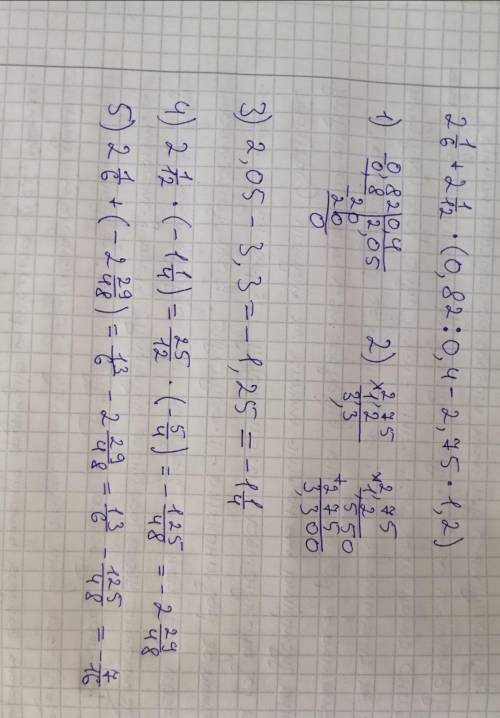 2 1/6 + 2 1/12 · (0,82 : 0,4 - 2,75 · 1,2)
1) 0,82 | 0,4
0,8 | 2,05
20
20
0
2) × 2,75
1,2
3,3
× 2,75
1,2
550
+ 275
3,300
3) 2,05 - 3,3 = -1,25 = -1 1/4
4) 2 1/12 · (-1 1/4) = 25/12 · (-5/4) = -125/48 = -2 29/48
5) 2 1/6 + (-2 29/48) = 13/6 - 2 29/48 = 13/6 - 125/48 = -7/16